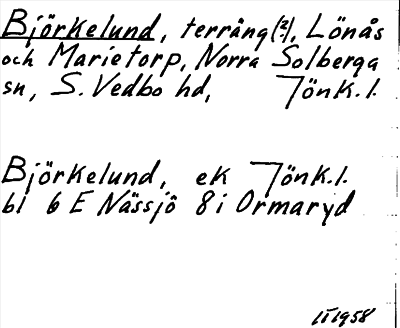 Björkelund, terräng(?), Lönås
och Marietorp, Norra Solberga
sn, S. Vedbo hd, Jönk. l.
Björkelund, ek Jönk. l.
bl 6 E Nässjö 8 i Ormaryd
1958